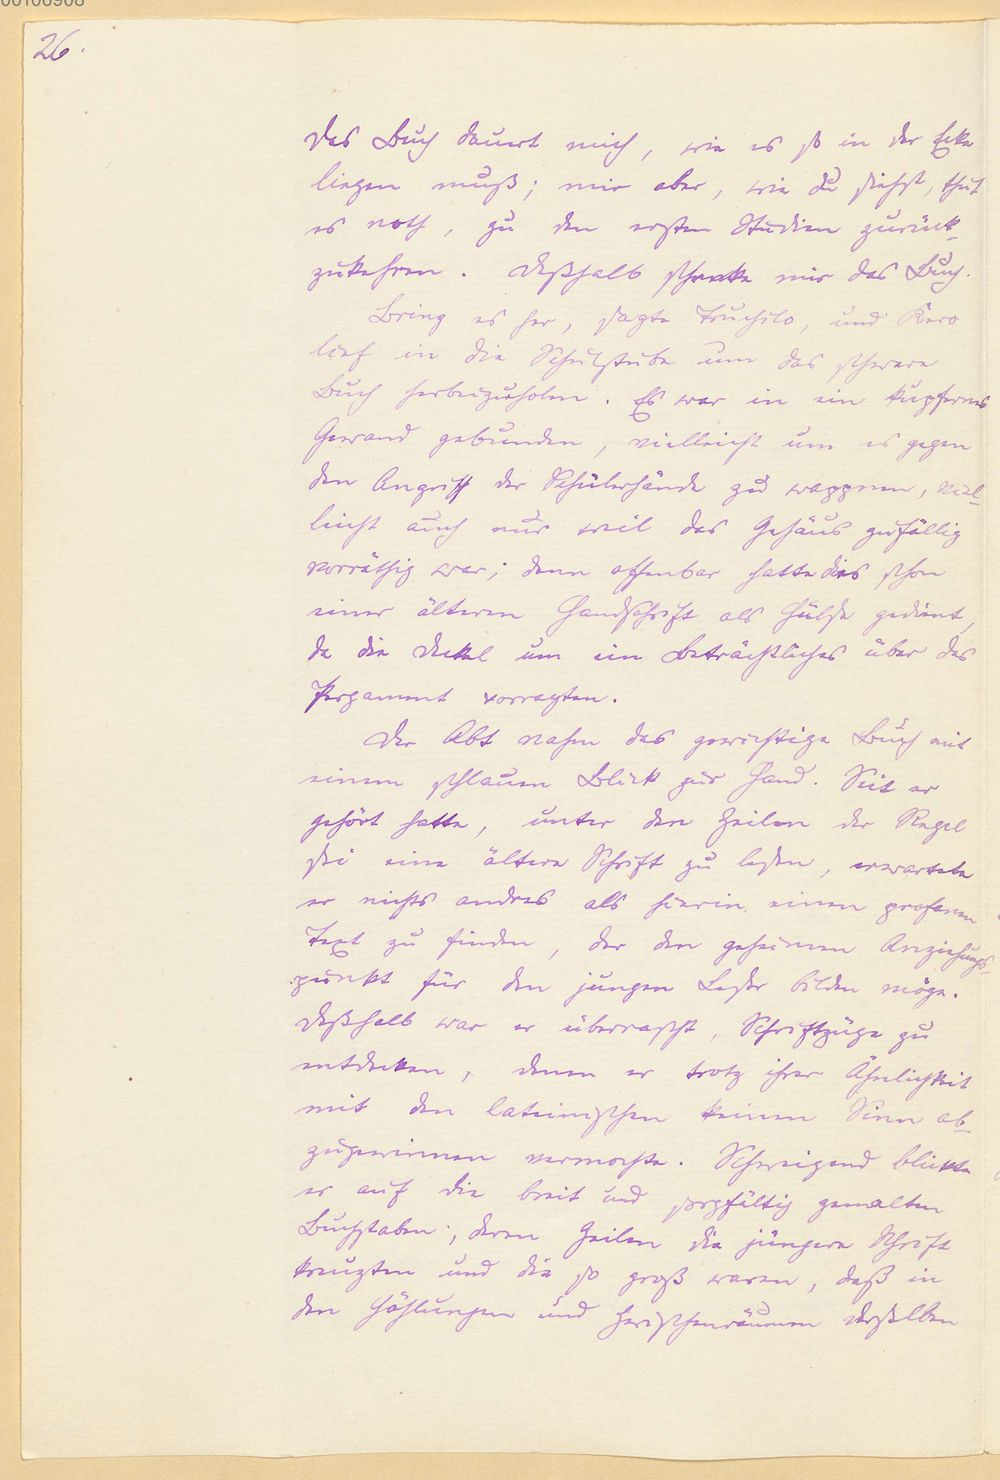 00106908
26.
Das Buch dauert mich, wie es so in der Ecke
liegen muß; mir aber, wie du siehst, thut
es noth, zu den ersten Studien zurück-
zukehren. Deßhalb schenke mir das Buch.
Bring es her, sagte Truchilo, und Kero
lief in die Schulstube um das schwere
Buch herbeizuholen. Es war in ein kupfernes
Gewand gebunden, vielleicht um es gegen
den Angriff der Schülerhände zu wappnen, viel-
leicht auch nur weil das Gehäus zufällig
vorräthig war; denn offenbar hatte dies schon
einer älteren Handschrift als Hülse gedient,
da die Deckel um ein Beträchtliches über das
Pergament vorragten.
Der Abt nahm das gewichtige Buch mit
einem schlauen Blick zur Hand. Seit er
gehört hatte, unter den Zeilen der Regel
sei eine ältere Schrift zu lesen, erwartete
er nichts andres als hierin einen profanen
Text zu finden, der den geheimen Anziehungs-
punkt für den jungen Leser bilden möge.
Deßhalb war er überrascht, Schriftzüge zu
entdecken, denen er trotz ihrer Ähnlichkeit
mit den lateinischen keinen Sinn ab-
zugewinnen vermochte. Schweigend blickte
er auf die breit und sorgfältig gemalten
Buchstaben, deren Zeilen die jüngere Schrift
kreuzten und die so groß waren, daß in
den Höhlungen und Zwischenräumen derselben